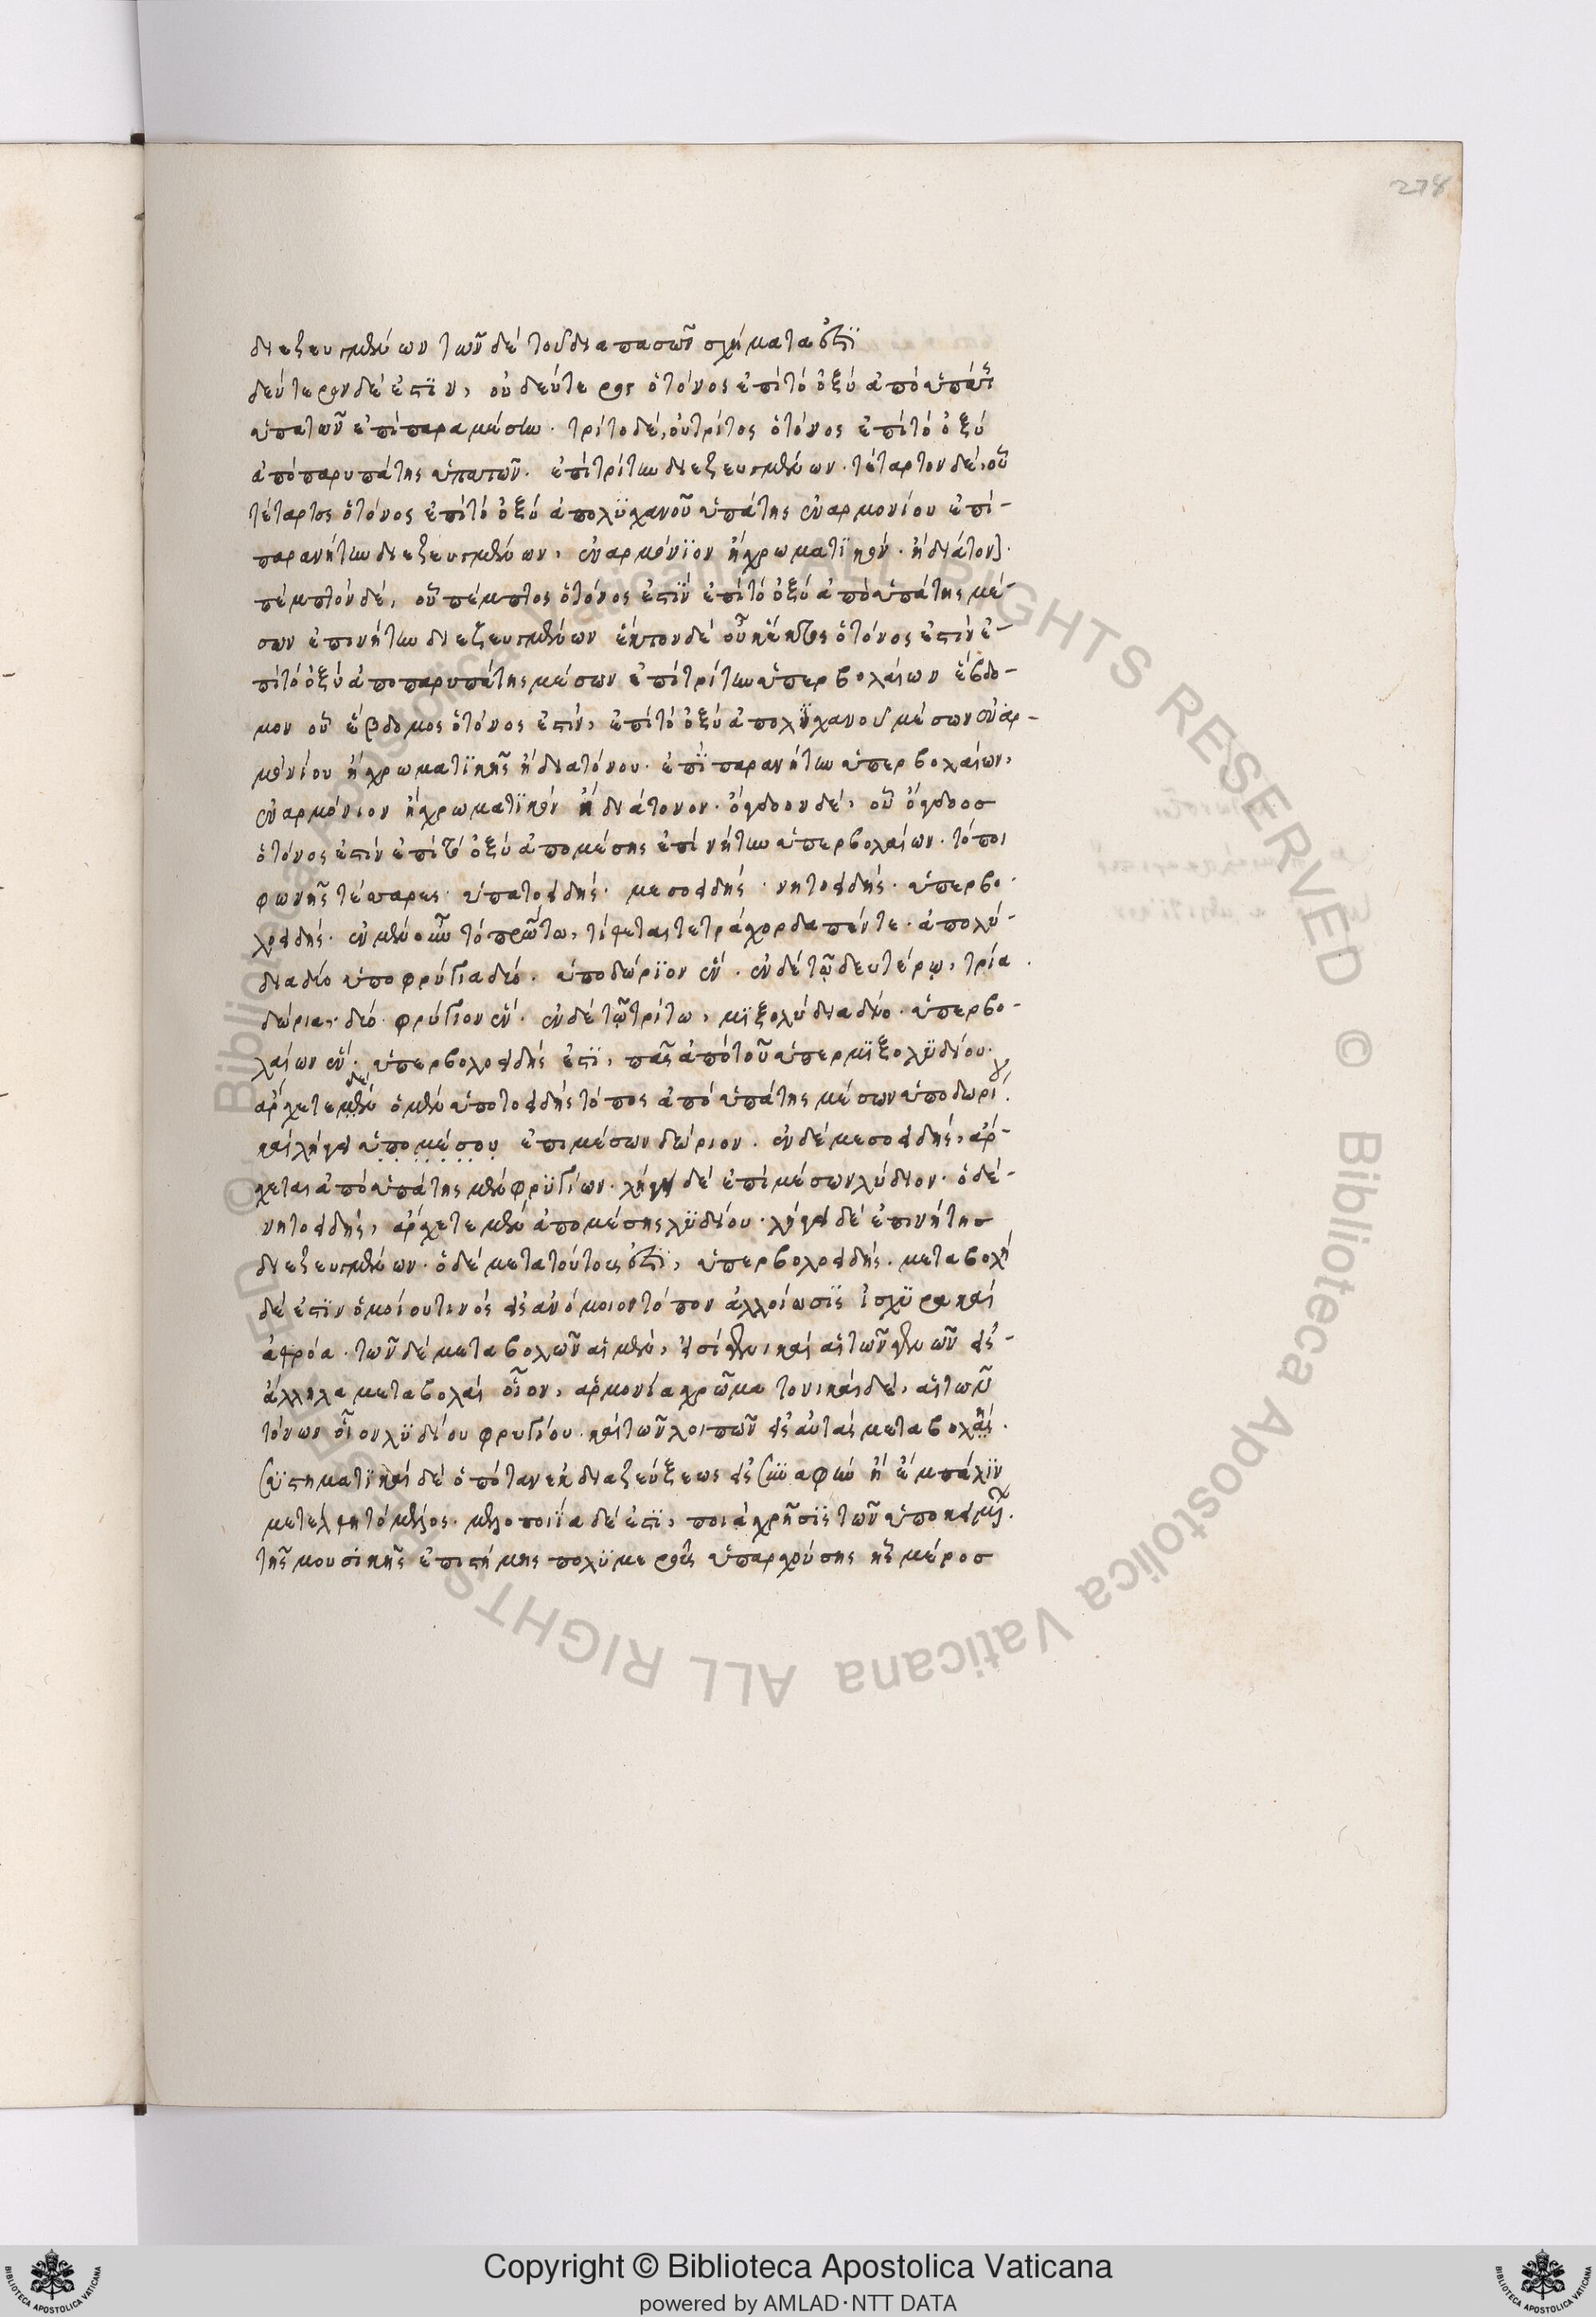 278
διεζευγμένων τῶν δέ τοῦ διαπασῶν σχήματα ἐστϊ
δεύτερον δέ ἐστϊν, οὐ δεύτερος ὁ τόνος ἐπί τό ὀξύ ἀπό ὑπάτ
ὑπατῶν ἐπί παραμέσην. τρίτο δέ, οὐ τρίτος ὁ τόνος ἐπί τό ὀξύ
ἀπό παρυπάτης ὑπατῶν. ἐπί τρίτην διεζευγμένων. τέταρτον δέ, οὗ
τέταρτος ὁ τόνος ἐπί τό ὀξύ ἀπο λϋχανοῦ ὑπάτης ἐναρμονίου ἐπί-
παρανήτην διεζευγμένων, ἐναρμόνϊον ἤ χρωματϊκόν. ἤ διάτον.
πέμπτον δέ, οὗ πέμπτος ὁ τόνος ἐστϊν ἐπί τό ὀξύ ἀπό ὑπάτης μέ-
σων ἐπι νήτην διεζευγμένων ἕκτον δέ οὗ ἕκτος ὁ τόνος ἐστίν ἐ-
πί τό ὀξύ ἀπο παρυπάτης μέσων ἐπί τρίτην ὑπερβολαίων ἕβδο-
μον οὗ ἕβδομος ὁ τόνος ἐστίν, ἐπί τό ὀξύ ἀπο λϋχανοῦ μέσων ἐναρ-
μόνίου ἤ χρωματϊκῆς ἤ διατόνου. ἐπϊ παρανήτην ὑπερβολαίων,
ἐναρμόνιον ἤ χρωματϊκόν ἤ διάτονον. ὄγδοον δέ, οὗ ὄγδοοσ
ὁ τόνος ἐστίν ἐπί τό ὀξύ ἀπο μέσης ἐπί νήτην ὑπερβολαίων. τόποι
φωνῆς τέσσαρες. ὑπατοειδής. μεσοειδής. νητοειδής. ὑπερβο-
λοειδής. ἐν μέν οὖν τό πρῶτω, τίθεται τετράχορδα πέντε. ὑπολύ-
δια δύο ὑποφρύγια δύο. ὑποδώρϊον ἕν. ἐν δέ τῷ δευτέρῳ, τρία
δώρια, δύο. φρύγιον ἕν. ἐν δέ τῷ τρίτω, μϊξολύδια δύο. ὑπερβο-
λαίων ἕν. ὑπερβολοειδής ἐστϊ, πᾶς ἀπό τοῦ ὑπερμϊξολϋδίου.
ἄρχετε μέν δέ ὁ μέν ὑποτοειδής τόπος ἀπό ὑπάτης μέσων ὑποδωρί.
καί λήγει ὑπο μέσου ἐπι μέσων δώριον. ἐν δέ μεσοειδής, ἄρ-
χεται ἀπό ὑπάτης μέν φρϋγίων. λήγει δέ ἐπί μέσων λύδιον. ὁ δέ-
νητοειδής, ἄρχετε μέν ἀπο μέσης λϋδίου. λήγει δέ ἐπι νήτησ
διεζευγμένων. ὁ δέ μετα τούτους ἐστϊ, ὑπερβολοειδής. μεταβολή
δέ ἐστϊν ὁμοίου τινός εἰς ἀνόμοιον τόπον ἀλλοίωσϊς ἰσχϋρα καί
ἀθρόα. τῶν δέ μεταβολῶν αἱ μέν, εἰσί γενικαί αἱ τῶν γενῶν εἰς-
ἄλληλα μεταβολαί οἷον, ἁρμονία χρῶμα τονικαί δέ, αἱ τῶν
τόνων οἷον λϋδίου φρυγίου. καί τῶν λοιπῶν εἰς αὐτάς μεταβολαί.
συστηματϊκαί δέ ὁπόταν ἐκ διαζεύξεως εἰς συναφήν ἤ ἔμπάλϊν
μετέλθη τό μέλος. μελοποιΐα δέ ἐστϊ, ποιά χρῆσϊς τῶν ὑποκειμ.
τῆς μουσικῆς ἐπιστήμης πολϋμεροῦς ὑπαρχούσης ἧς μέροσ
Copyright © Biblioteca Apostolica Vaticana
powered by AMLAD·NTT DATA